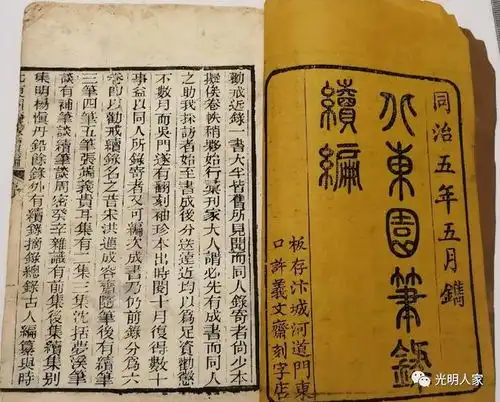 同治五年五月鐫
北東園筆錄
續編
板存汴城河道門東
口許義文齋刻字店
勸戒近錄一書大半皆舊所見聞而同人錄寄者尚少本
擬俟卷帙稍夥始行彙刊家大人謂必先有成書而同人
之助我採訪者始至書成後分送遠近均以為足資勸懲
不數月而吳門遂有翻刻袖珍本出時閱十月復得數十
事益以同人所錄寄者又可編次成書乃仍前錄分為六
卷即以勸戒續錄名之昔宋洪邁成容齋隨筆後有續筆
三筆四筆五筆張端義貴耳集有二集三集沈括夢溪筆
談有補筆談續筆談周密癸辛雜識有前集後集續集別
集明楊慎丹鉛餘錄外有續錄摘錄總錄古人編纂與時
光明人家